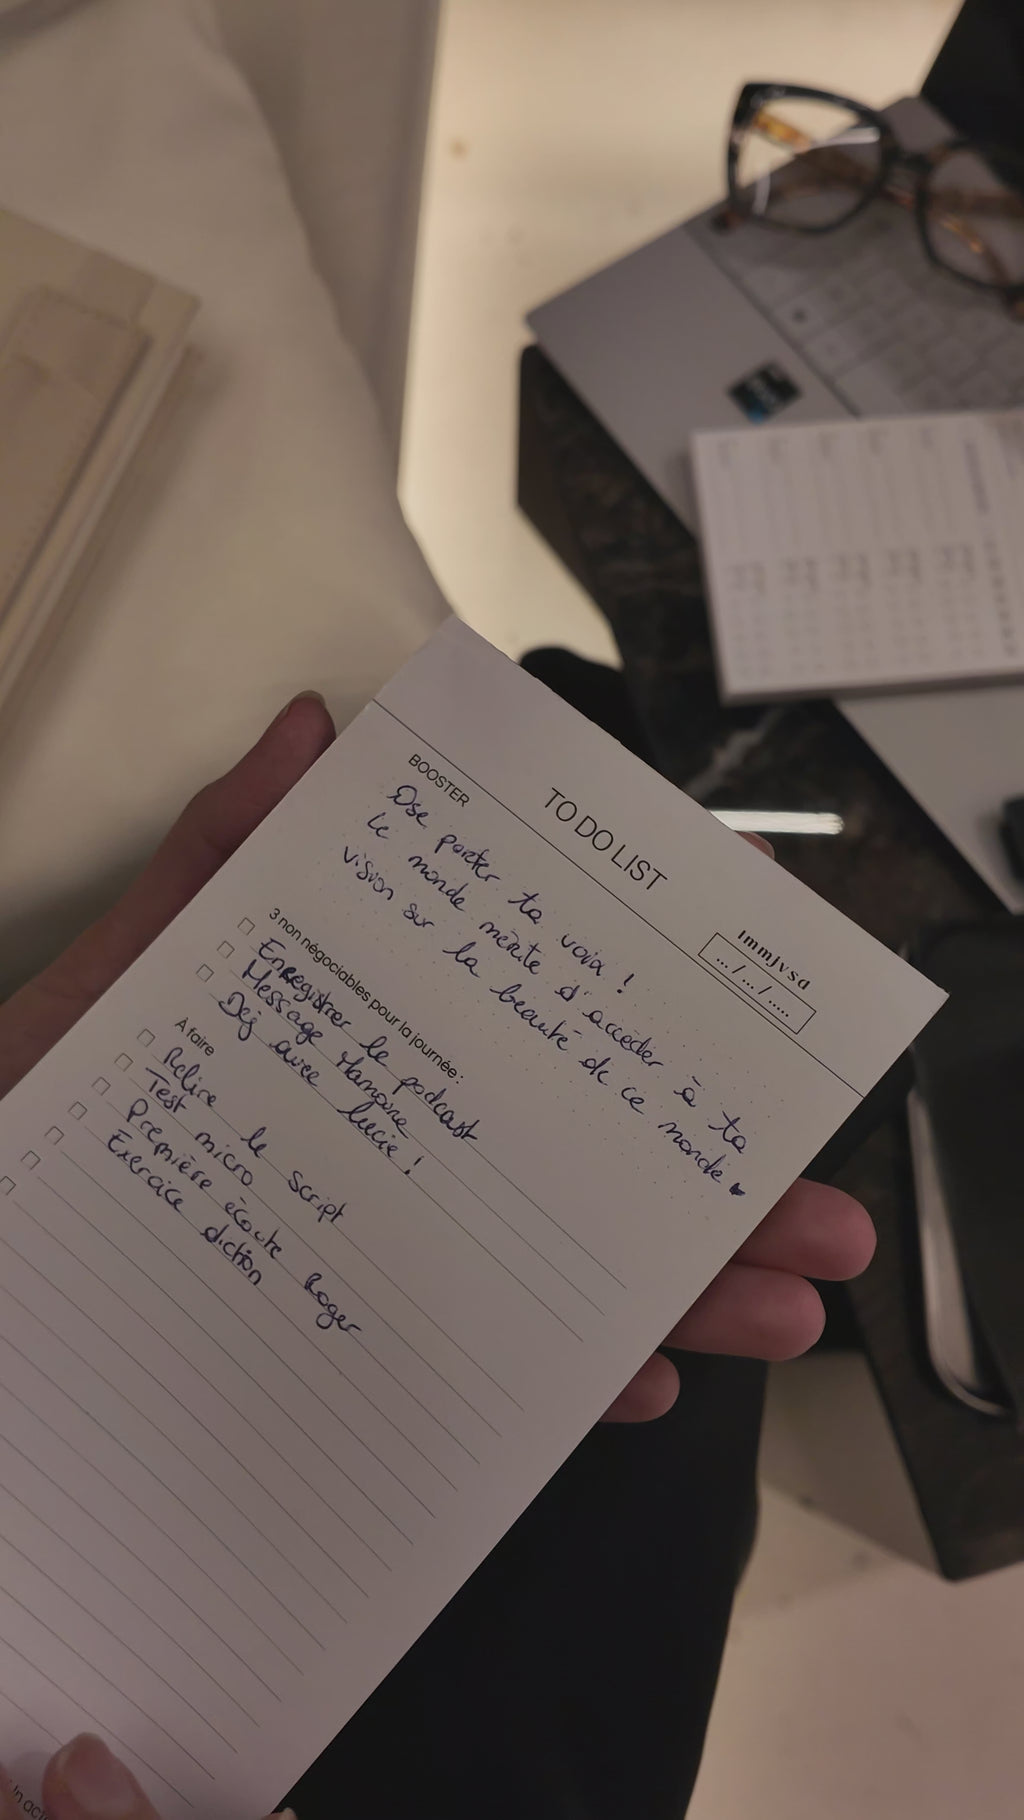 TO DO LIST
lmmjvsd
... / ... / .....
BOOSTER
Ose porter ta voix !
Le monde mérite d'accéder à ta
vision sur la beauté de ce monde
3 non négociables pour la journée :
Enregistrer le podcast
Message
Dej avec Lucie !
À faire
Relire le script
Test micro
Première écoute Roger
Exercice diction